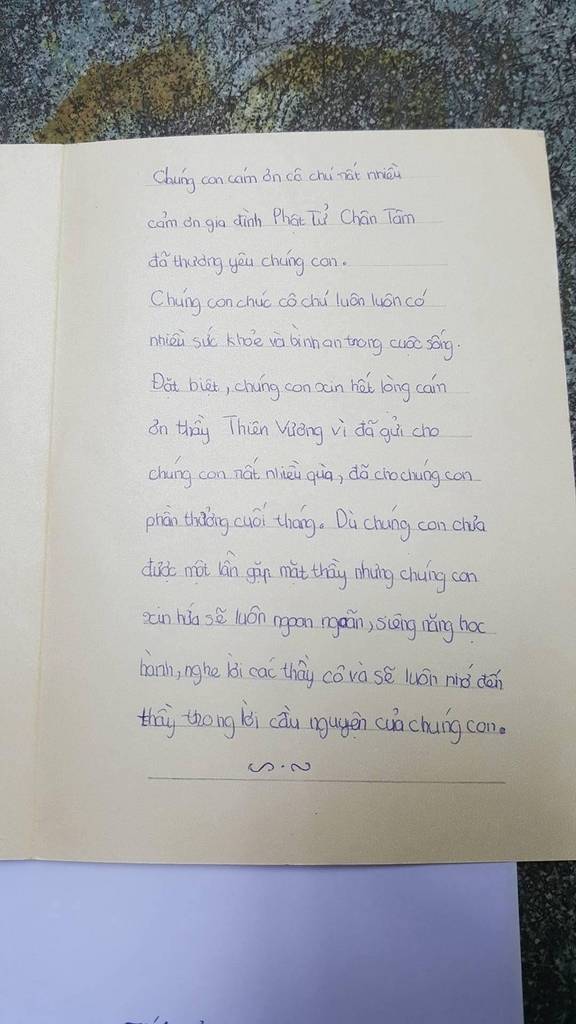 Chúng con cám ơn cô chú rất nhiều
cảm ơn gia đình Phật Tử Chân Tâm
đã thương yêu chúng con.
Chúng con chúc cô chú luôn luôn có
nhiều sức khỏe và bình an trong cuộc sống.
Đặt biệt, chúng con xin hết lòng cám
ơn thầy Thiên Vương vì đã gửi cho
chúng con rất nhiều quà, đã cho chúng con
phần thưởng cuối tháng. Dù chúng con chưa
được một lần gặp mặt thầy nhưng chúng con
xin hứa sẽ luôn ngoan ngoãn, siêng năng học
hành, nghe lời các thầy cô và sẽ luôn nhớ đến
thầy trong lời cầu nguyện của chúng con.